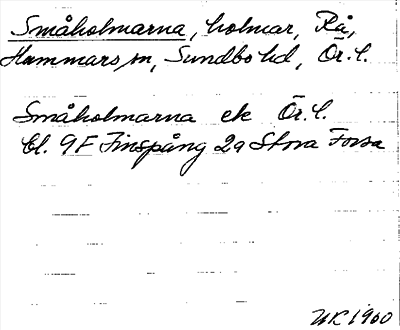 Småholmarna, holmar, Rå,
Hammars sn, Sundbo hd, Ör. l.
Småholmarna ek Ör. l.
Bl. 9F Finspång 2a Stora Forsa
UK 1960